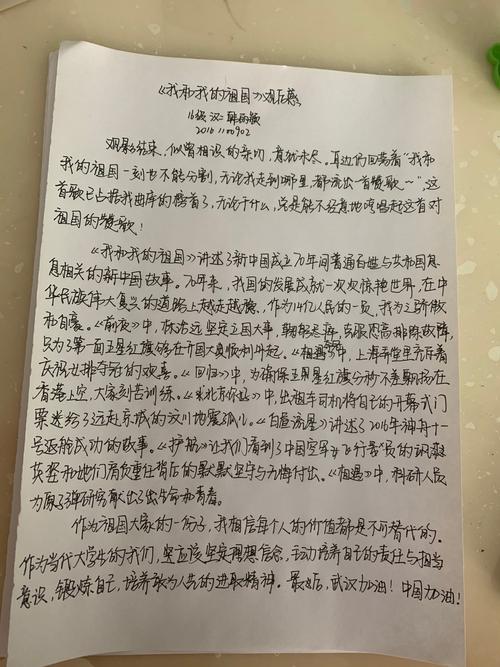 《我和我的祖国》观后感
16级 汉二
观影结束，似曾相识的亲切，意犹未尽。耳边仍回荡着“我和
我的祖国一刻也不能分割，无论我走到哪里，都流出一首赞歌~”，这
首歌已占据我曲库的榜首了，无论干什么，总是能不经意地哼唱起这首对
祖国的赞歌！
《我和我的祖国》讲述了新中国成立70年间普通百姓与共和国息
息相关的新中国故事。70年来，我国的发展成就一次次惊艳世界，在中
华民族伟大复兴的道路上越走越稳，作为14亿人民的一员，我为之骄傲
和自豪。《前夜》中，林治远坚定立国大事，克服恐高排除故障，
只为了第一面五星红旗能够在开国大典顺利升起。《相遇》中，上海弄堂里充斥着
庆祝女排夺冠的欢喜。《回归》中，为确保五星红旗分秒不差飘扬在
香港上空，大家刻苦训练。《北京你好》中，出租车司机将自己的开幕式门
票送给了远赴京城的汶川地震孤儿。《白昼流星》讲述了2016年神舟十一
号返航成功的故事。《护航》让我们看到了中国空军女飞行员的飒爽
英姿和她们肩负重任背后的默默坚守与无悔付出。《相遇》中，科研人员
为原子弹研究献出了生命和青春。
作为祖国大家的一份子，我相信每个人的价值都是不可替代的。
作为当代大学生的我们，更应该坚定理想信念，主动培养自己的责任与担当
意识，锻炼自己，培养敢为人先的进取精神。最后，武汉加油！中国加油！